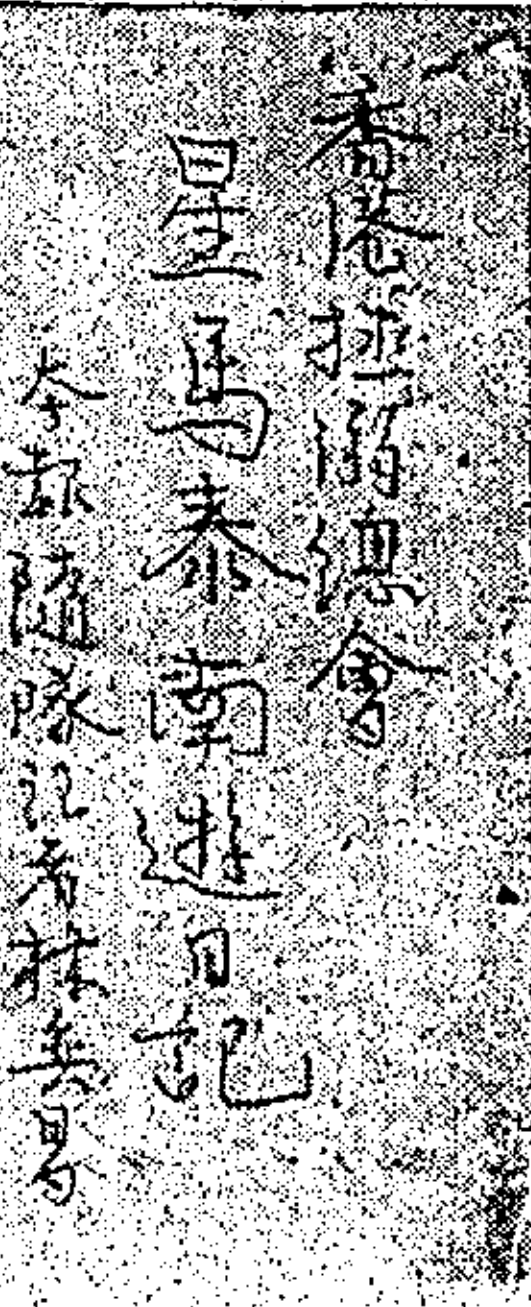 香港拯溺總會
星馬泰南遊日記
本報隨隊記者林嘉葛